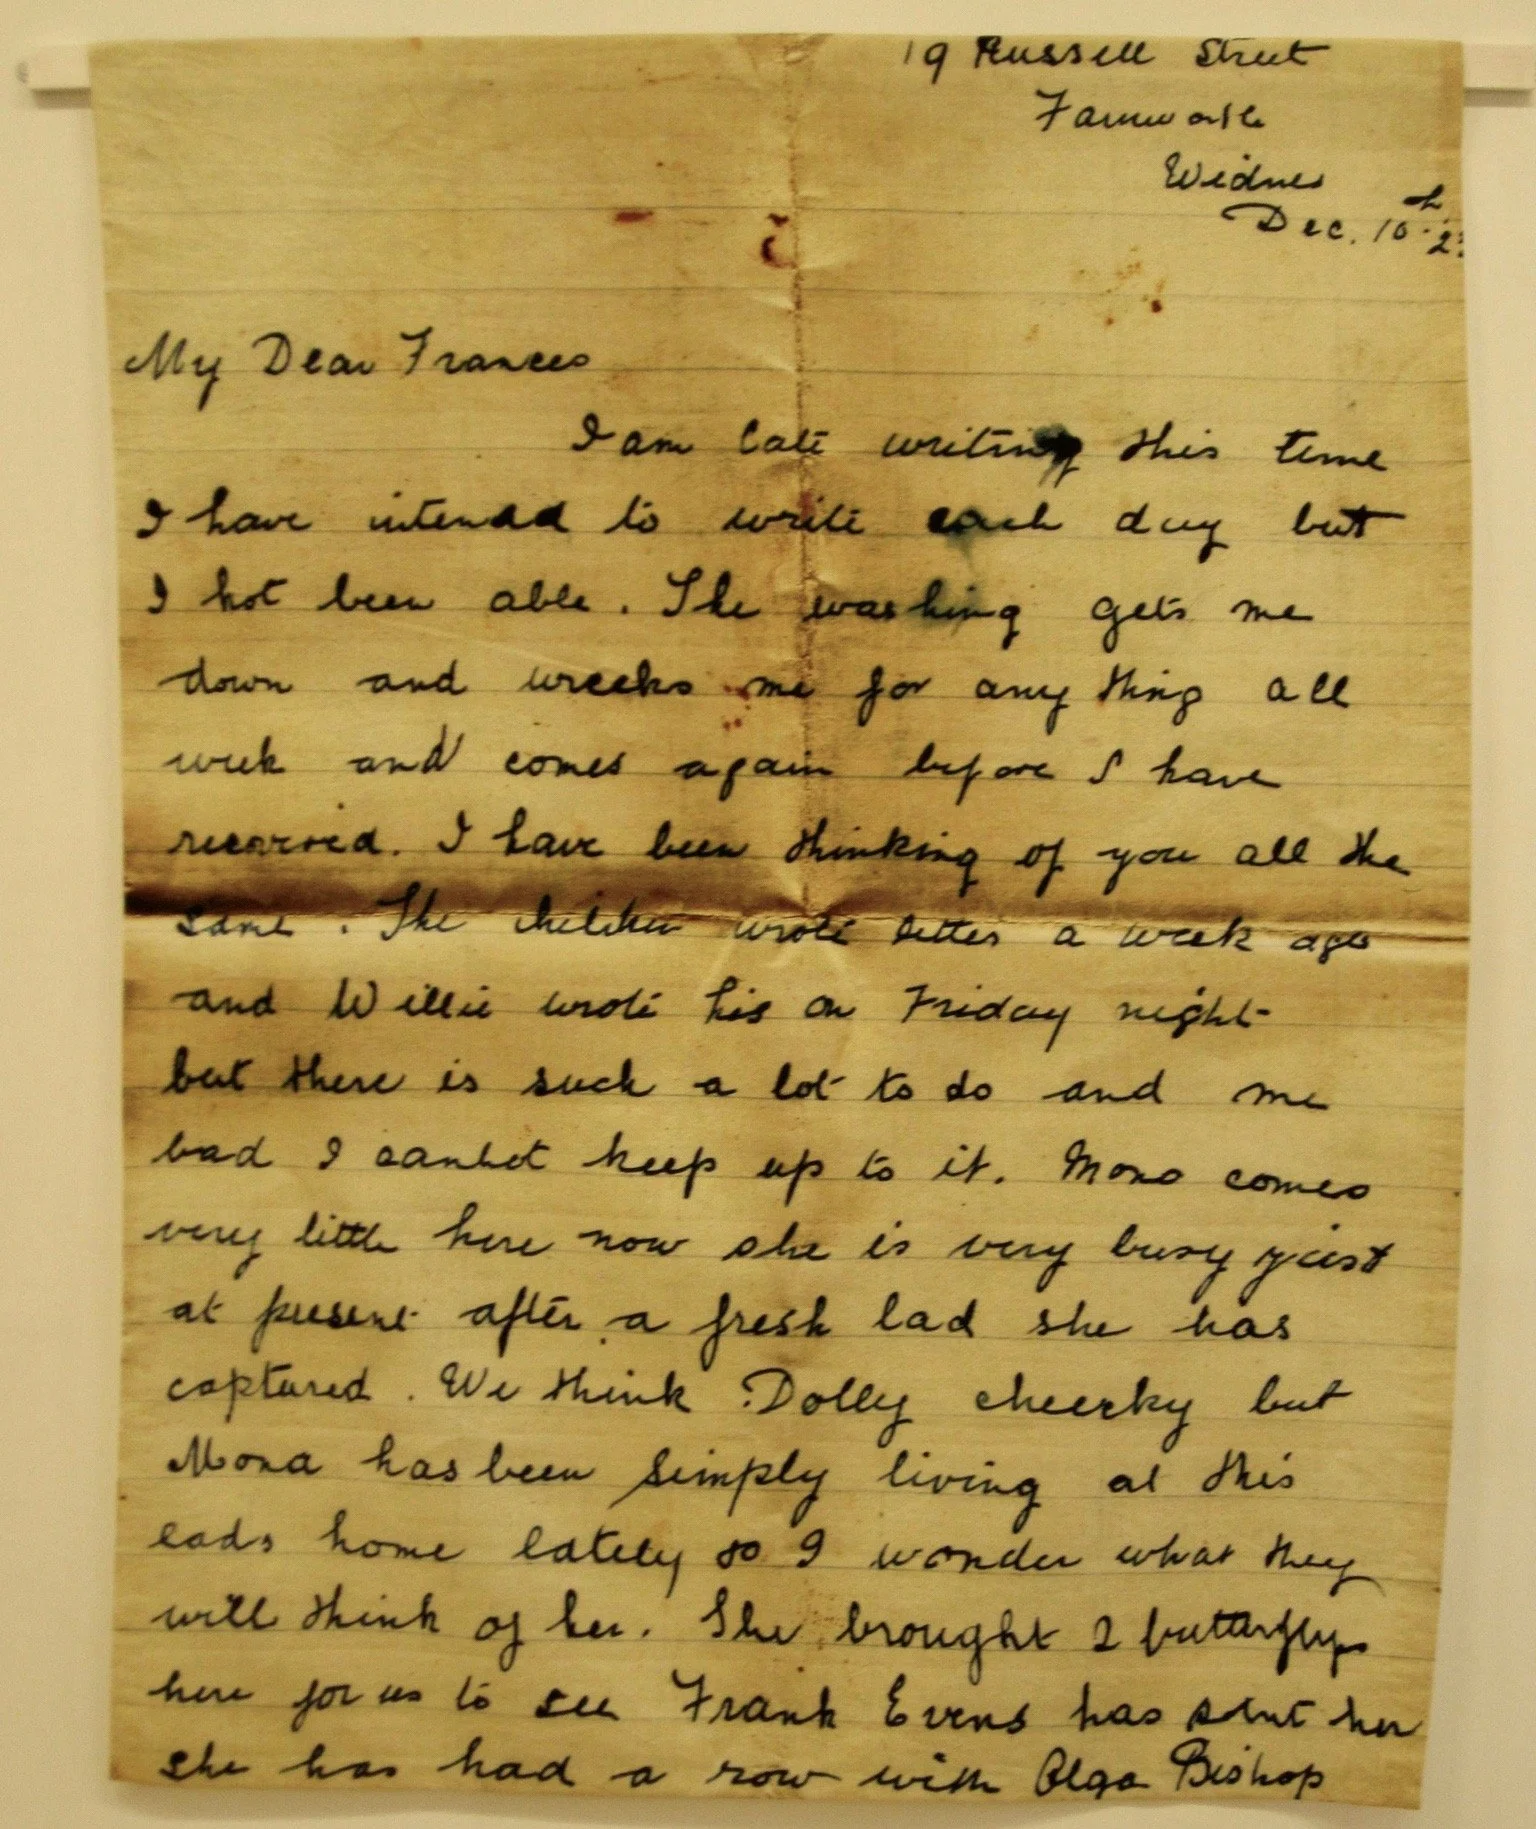 19 Russell Street
Farnworth
Widnes
Dec. 10th
My Dear Frances
I am late writing this time
I have intended to write each day but
I not been able. The washing gets me
down and wrecks me for any thing all
week and comes again before I have
recovered. I have been thinking of you all the
same. The children wrote letter a week ago
and Willie wrote his on Friday night
but there is such a lot to do and me
bad I cannot keep up to it. Mona comes
very little here now she is very busy just
at present after a fresh lad she has
captured. We think Dolly cheeky but
Mona has been simply living at this
lads home lately so I wonder what they
will think of her. She brought 2 butterflys
here for us to see Frank Evens has sent her
she has had a row with Olga Bishop